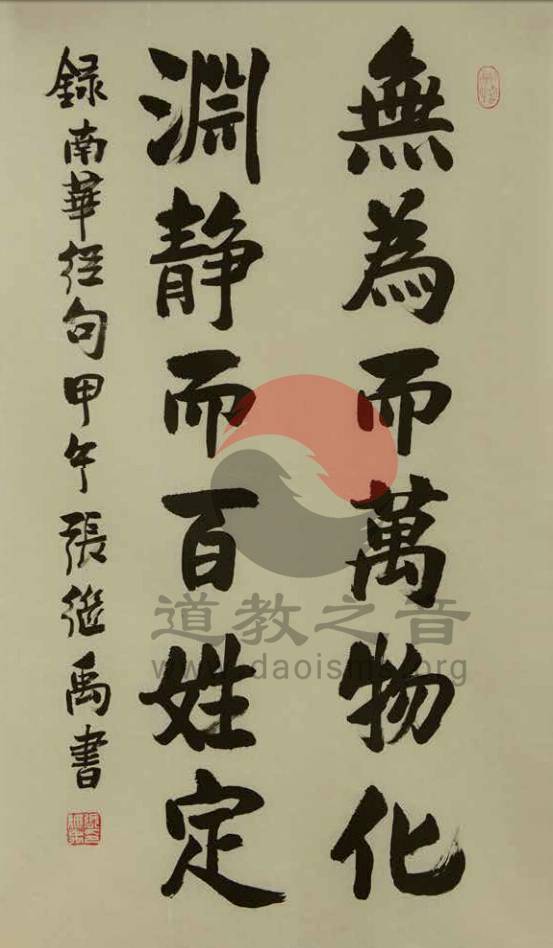 無為而萬物化
淵静而百姓定
録南華经句甲午張继禹書
道教之音
www.daoism.org